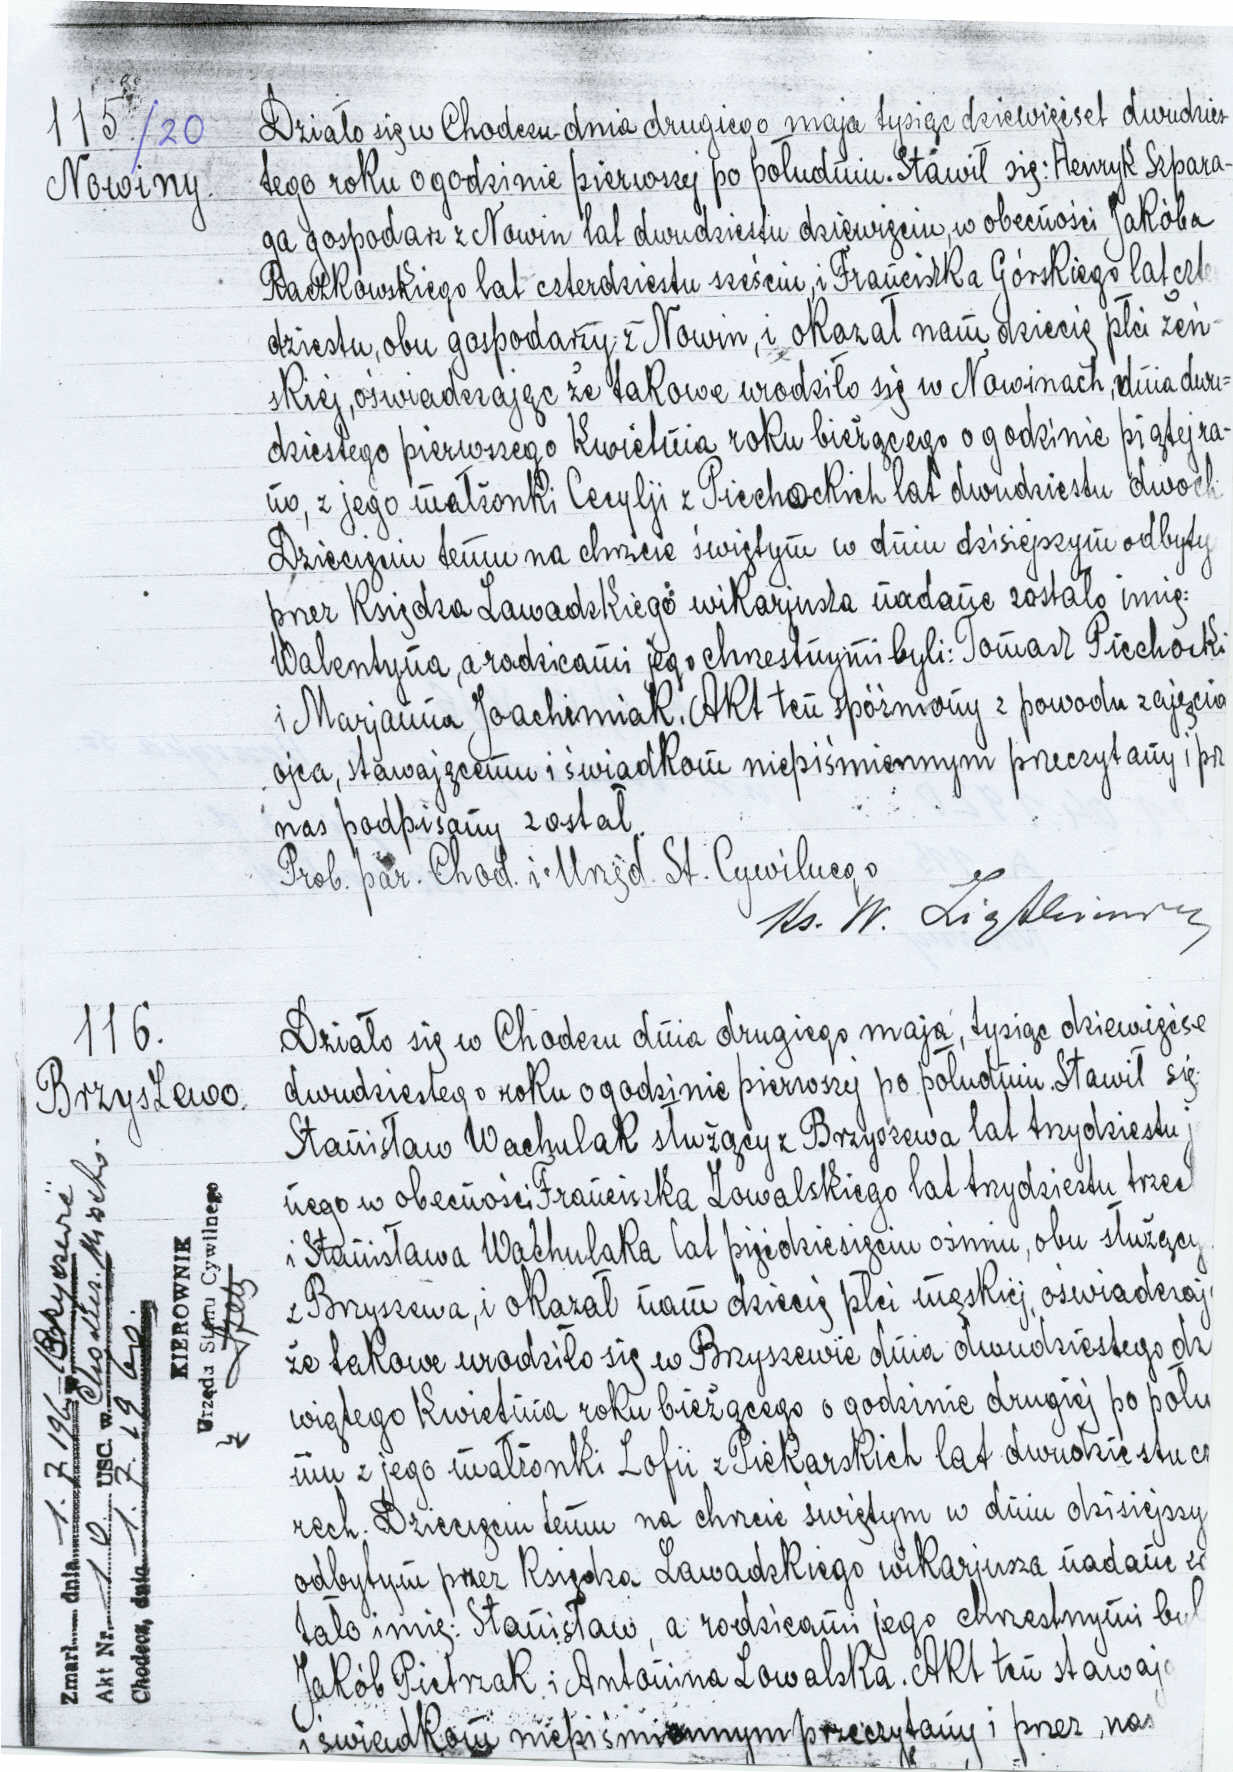 115/20
Nowiny.
Działo się w Chodczu dnia drugiego maja tysiąc dziewięćset dwudzies-
tego roku o godzinie pierwszej po południu. Stawił się: Henryk Szpara-
ga gospodarz z Nowin lat dwudziestu dziewięciu, w obecności Jakóba
Raczkowskiego lat czterdziestu sześciu, i Franciszka Górskiego lat czte
dziestu, obu gospodarzy z Nowin, i okazał nam dziecię płci żeń-
skiej, oświadczając że takowe urodziło się w Nowinach, dnia dwu=
dziestego pierwszego Kwietnia roku bieżącego o godzinie piątej ra-
no, z jego małżonki Cecylji z Piechockich lat dwudziestu dwóch
Dziecięciu temu na chrzcie świętym w dniu dzisiejszym odbyty
przez Księdza Zawadzkiego wikarjusza nadane zostało imię:
Walentyna, a rodzicami jego chrzestnymi byli: Tomasz Piechocki
i Marjanna Joachimiak. Akt ten spóźniony z powodu zajęcia
ojca, stawającemu i świadkom niepiśmiennym przeczytany i prz
nas podpisany został.
Prob. par. Chod. i Urzęd. St. Cywilnego
Ks. W.
116.
Brzyszewo.
Działo się w Chodczu dnia drugiego maja, tysiąc dziewięćse
dwudziestego roku o godzinie pierwszej po południu. Stawił się:
Stanisław Wachulak służący z Brzyszewa lat trzydziestu j
nego w obecności Franciszka Zowalskiego lat trzydziestu trzec
i Stanisława Wachulaka lat pięćdziesięciu ośmiu, obu służący
z Brzyszewa, i okazał nam dziecię płci męskiej, oświadczaj
że takowe urodziło się w Brzyszewie dnia dwudziestego dz
wiątego Kwietnia roku bieżącego o godzinie drugiej po połu
niu z jego małżonki Zofii z Piekarskich lat dwudziestu cz
rech. Dziecięciu temu na chrzcie świętym w dniu dzisiejszy
odbytym przez Księdza Zawadzkiego wikarjusza nadane zo
tało imię: Stanisław, a rodzicami jego chrzestnymi był
Jakób Pietrzak i Antonina Zowalska. Akt ten stawają
i świadkom niepiśmiennym przeczytany i przez nas
Zmarł dnia 1.7.196 Brzyszewie
Akt Nr. USC. w Chodecz
Chodecz, dnia 1.7.19
KIEROWNIK
Urzędu Stanu Cywilnego